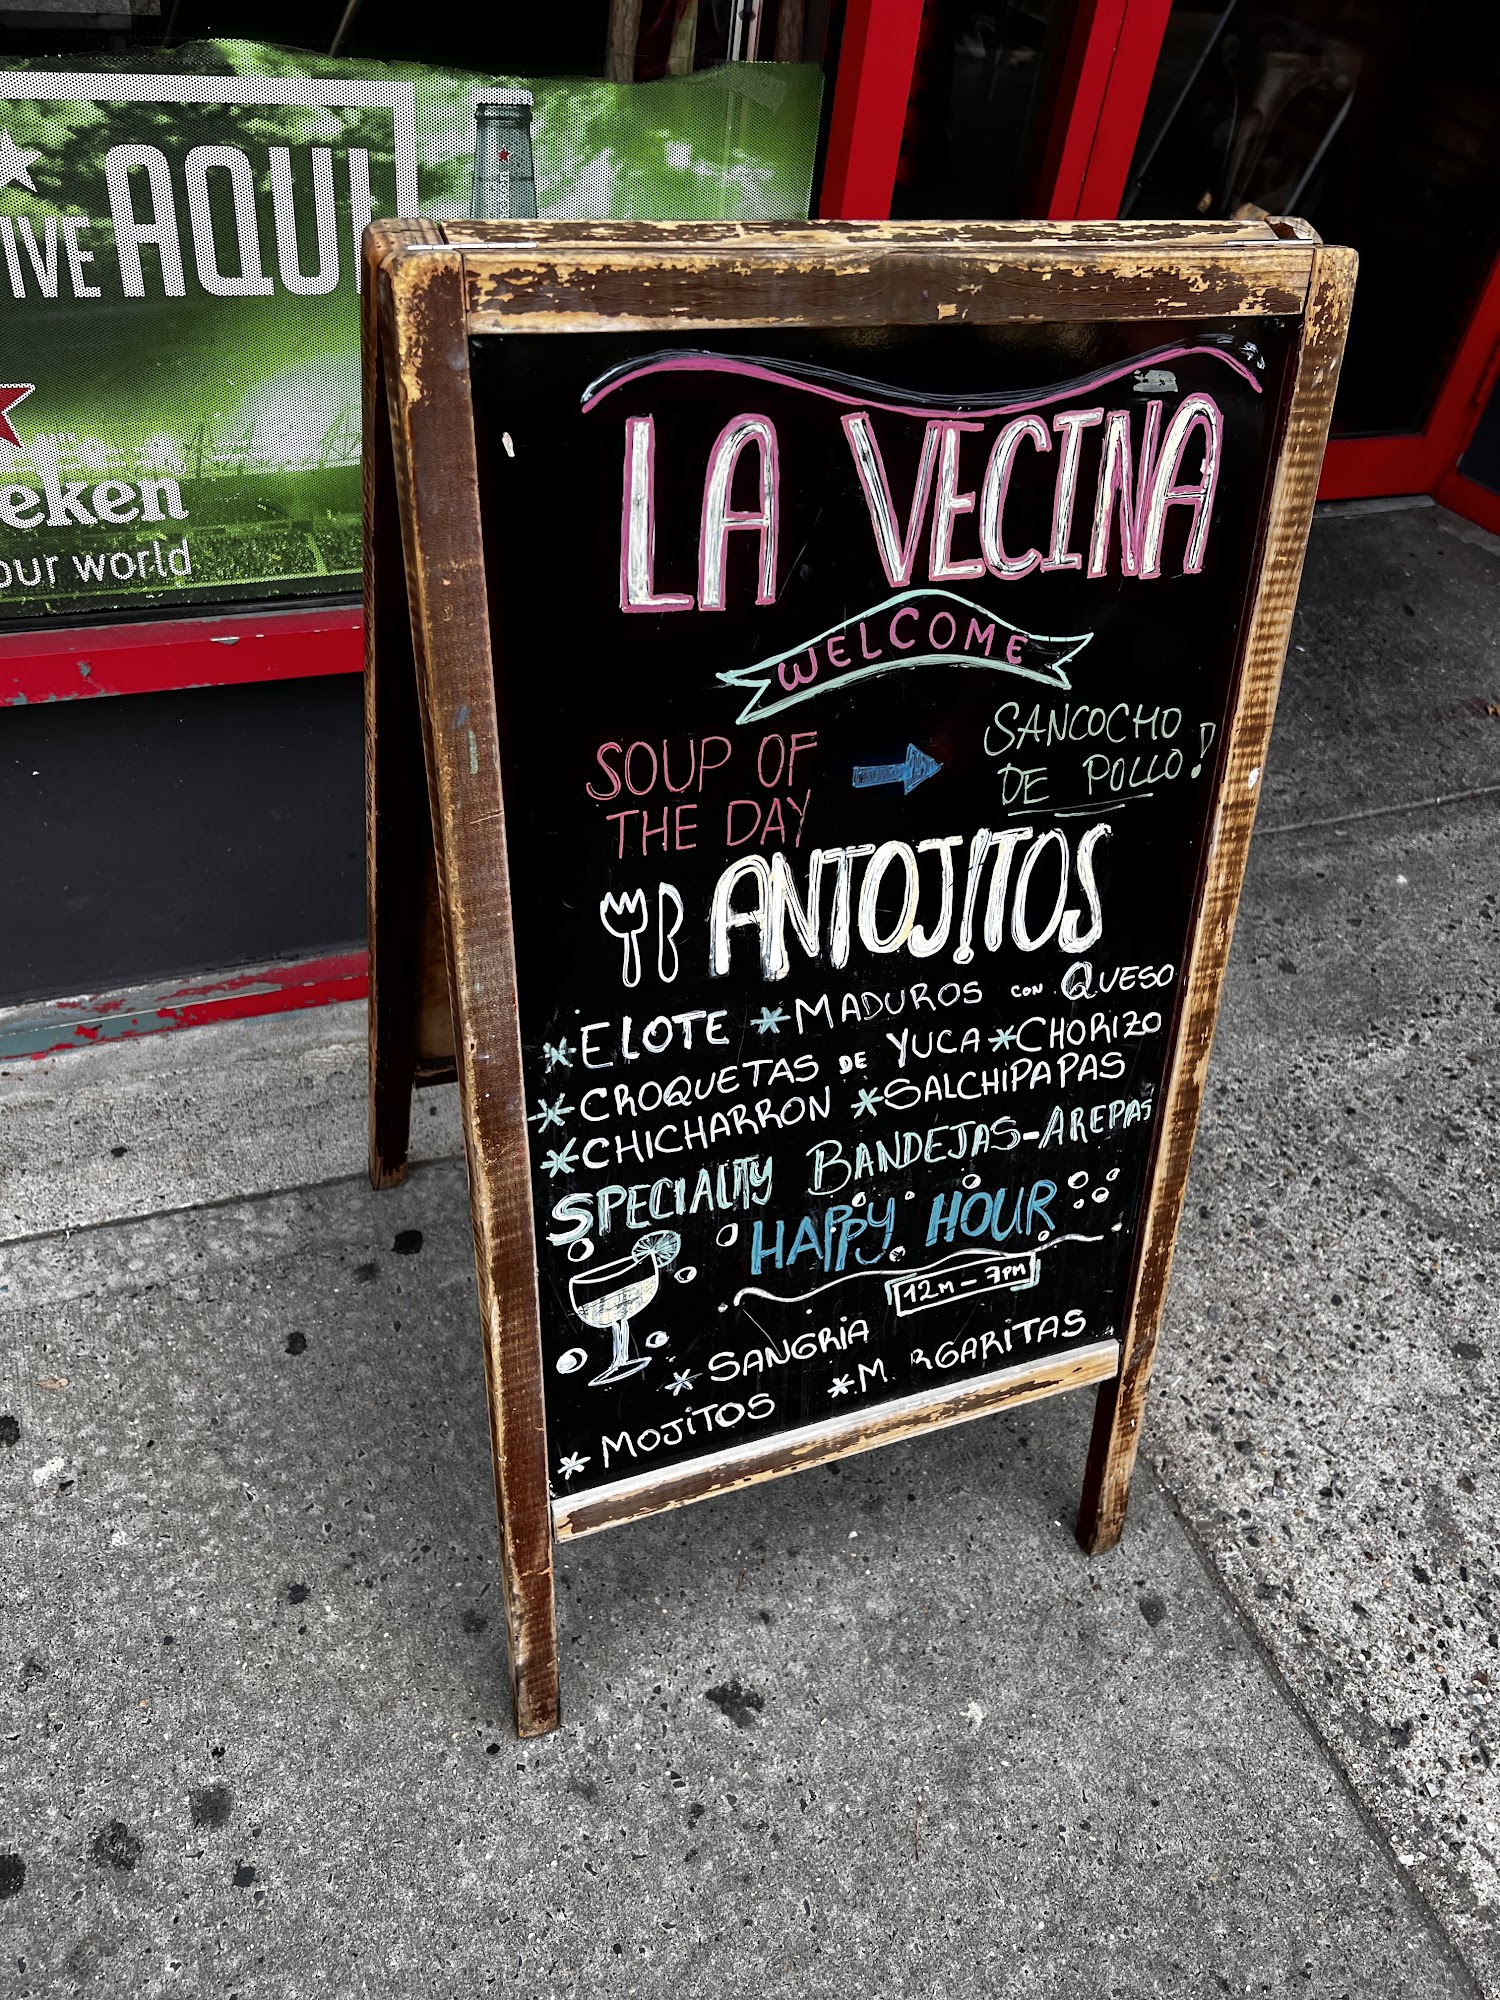 IVE AQUÍ
eken
our world
LA VECINA
WELCOME
SOUP OF
THE DAY
SANCOCHO
DE POLLO!
ANTOJITOS
*ELOTE *MADUROS CON QUESO
*CROQUETAS DE YUCA *CHORIZO
*CHICHARRON *SALCHIPAPAS
SPECIALITY BANDEJAS-AREPAS
HAPPY HOUR
12M-7PM
*SANGRIA
*MOJITOS *M RGARITAS